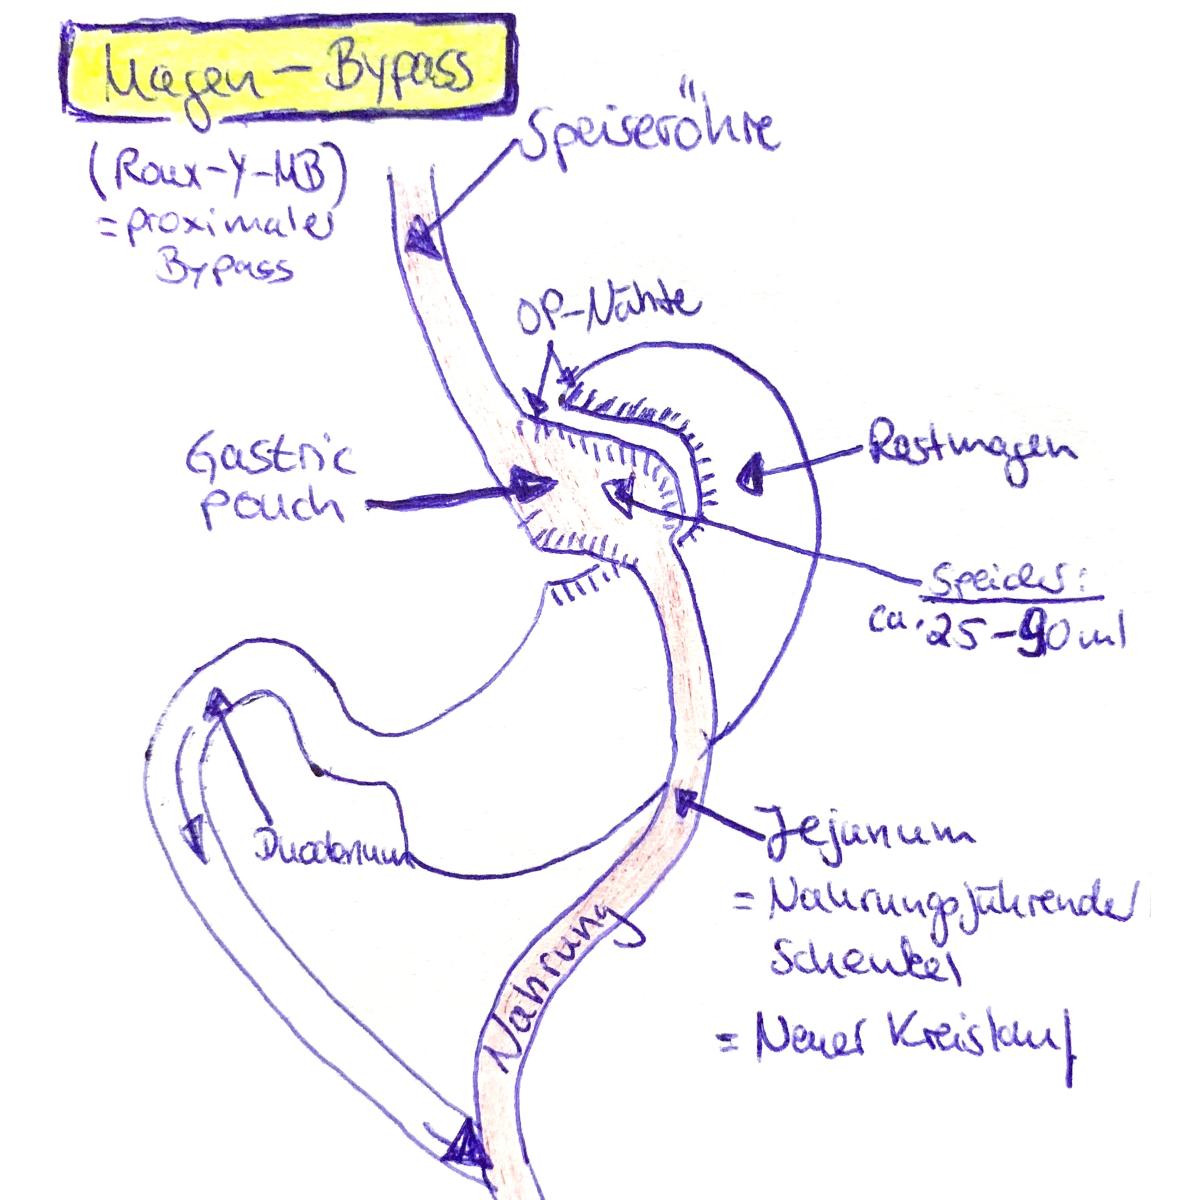 Magen-Bypass
(Roux-Y-MB)
= proximaler
Bypass
Speiseröhre
OP-Nähte
Gastric
pouch
Restmagen
Speicher:
ca. 25-90ml
Duodenum
Jejunum
= Nahrungsführender
Schenkel
= Neuer Kreislauf
Nahrung